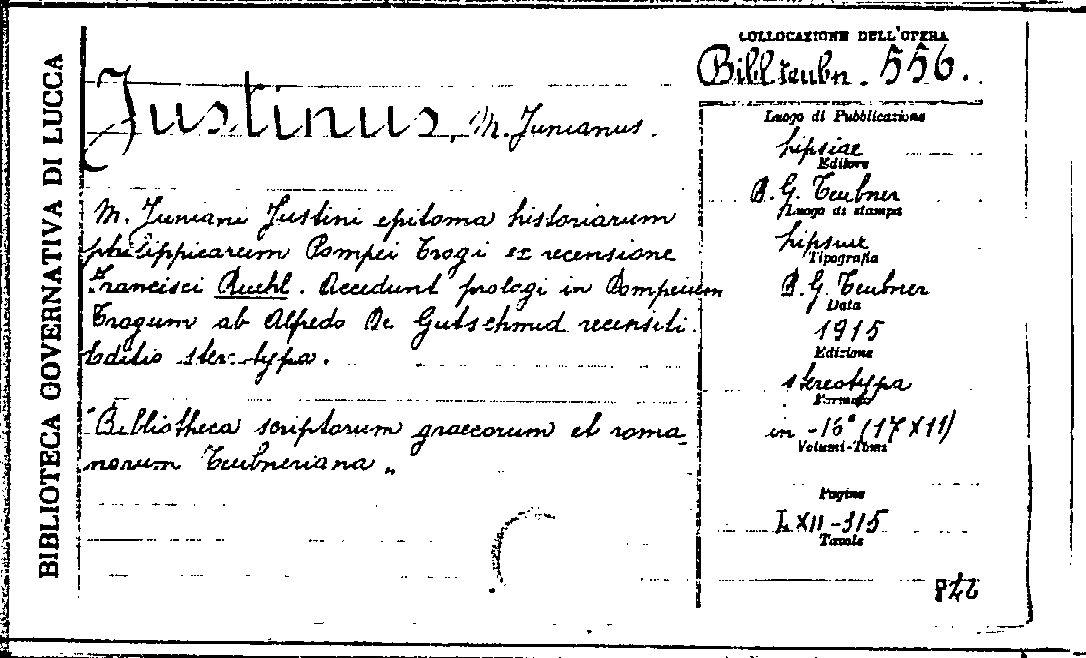 BIBLIOTECA GOVERNATIVA DI LUCCA
COLLOCAZIONE DELL'OPERA
Bibl. teubn. 556.
Justinus, M. Junianus.
M. Juniani Justini epitoma historiarum
philippicarum Pompei Trogi ex recensione
Francisci Ruehl. Accedunt prologi in Pompeium
Trogum ab Alfredo De Gutschmid recensiti.
Editio stereotypa.
"Bibliotheca scriptorum graecorum et roma_
norum Teubneriana„
Luogo di Pubblicazione
Lipsiae
Editore
B. G. Teubner
Luogo di stampa
Lipsiae
Tipografia
B. G. Teubner
Data
1915
Edizione
stereotypa
Formato
in -16° (17 X 11)
Volumi-Tomi
Pagine
LXII-315
Tavole